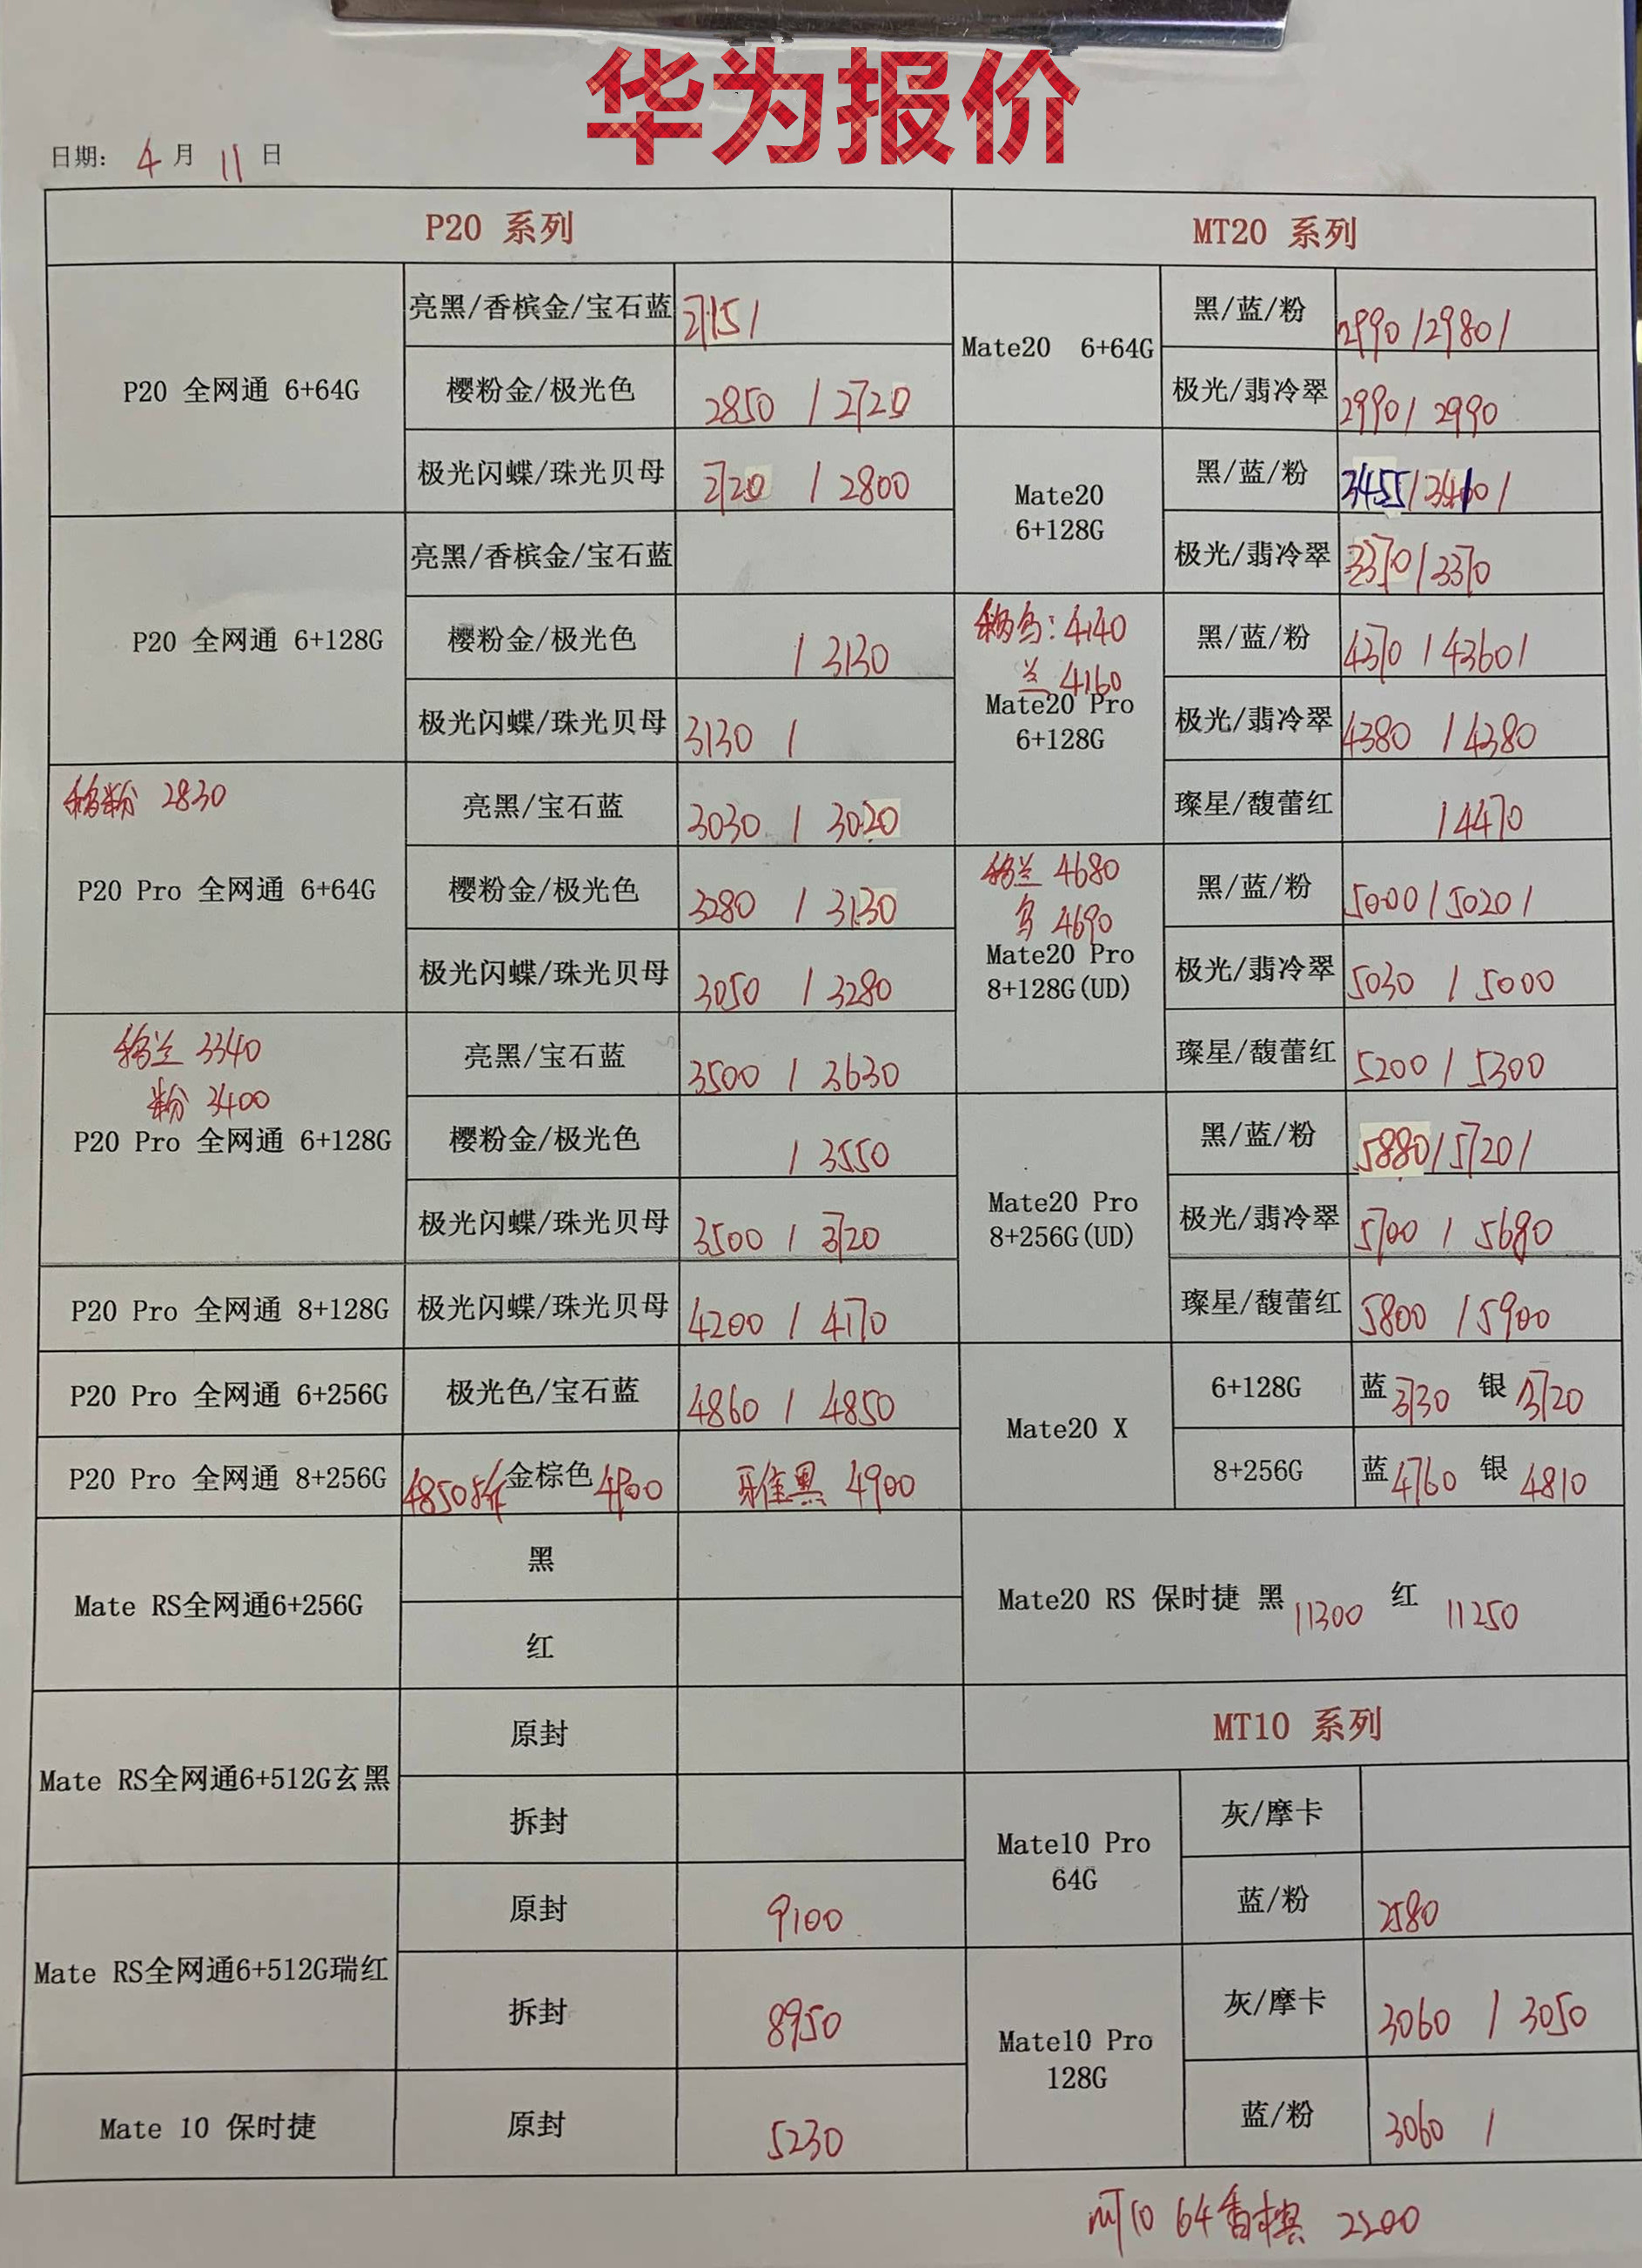 华为报价
日期: 4 月 11 日
P20 系列
P20 全网通 6+64G
亮黑/香槟金/宝石蓝 2715 /
樱粉金/极光色 2850 / 2720
极光闪蝶/珠光贝母 2720 / 2800
P20 全网通 6+128G
亮黑/香槟金/宝石蓝
樱粉金/极光色 / 3130
极光闪蝶/珠光贝母 3130 /
移粉 2830
P20 Pro 全网通 6+64G
亮黑/宝石蓝 3030 / 3020
樱粉金/极光色 3280 / 3130
极光闪蝶/珠光贝母 3050 / 3280
移兰 3340
粉 3400
P20 Pro 全网通 6+128G
亮黑/宝石蓝 3500 / 3630
樱粉金/极光色 / 3550
极光闪蝶/珠光贝母 3500 / 3720
P20 Pro 全网通 8+128G 极光闪蝶/珠光贝母 4200 / 4170
P20 Pro 全网通 6+256G 极光色/宝石蓝 4860 / 4850
P20 Pro 全网通 8+256G 4850 金棕色 4900 雅黑 4900
Mate RS全网通6+256G
黑
红
Mate RS全网通6+512G玄黑
原封
拆封
Mate RS全网通6+512G瑞红
原封 9100
拆封 8950
Mate 10 保时捷 原封 5230
MT20 系列
Mate20 6+64G
黑/蓝/粉 2990 / 2980 /
极光/翡冷翠 2990 / 2990
Mate20
6+128G
黑/蓝/粉 3455 / 3460 /
极光/翡冷翠 3370 / 3370
移乌: 4140
兰 4160
Mate20 Pro
6+128G
黑/蓝/粉 4370 / 4360 /
极光/翡冷翠 4380 / 4380
璨星/馥蕾红 / 4470
移兰 4680
乌 4690
Mate20 Pro
8+128G(UD)
黑/蓝/粉 5000 / 5020 /
极光/翡冷翠 5030 / 5000
璨星/馥蕾红 5200 / 5300
Mate20 Pro
8+256G(UD)
黑/蓝/粉 5880 / 5720 /
极光/翡冷翠 5700 / 5690
璨星/馥蕾红 5800 / 5900
Mate20 X
6+128G 蓝 3730 银 3720
8+256G 蓝 4760 银 4810
Mate20 RS 保时捷 黑 11300 红 11250
MT10 系列
Mate10 Pro
64G
灰/摩卡
蓝/粉 2580
Mate10 Pro
128G
灰/摩卡 3060 / 3050
蓝/粉 3060 /
MT10 64香槟 2200